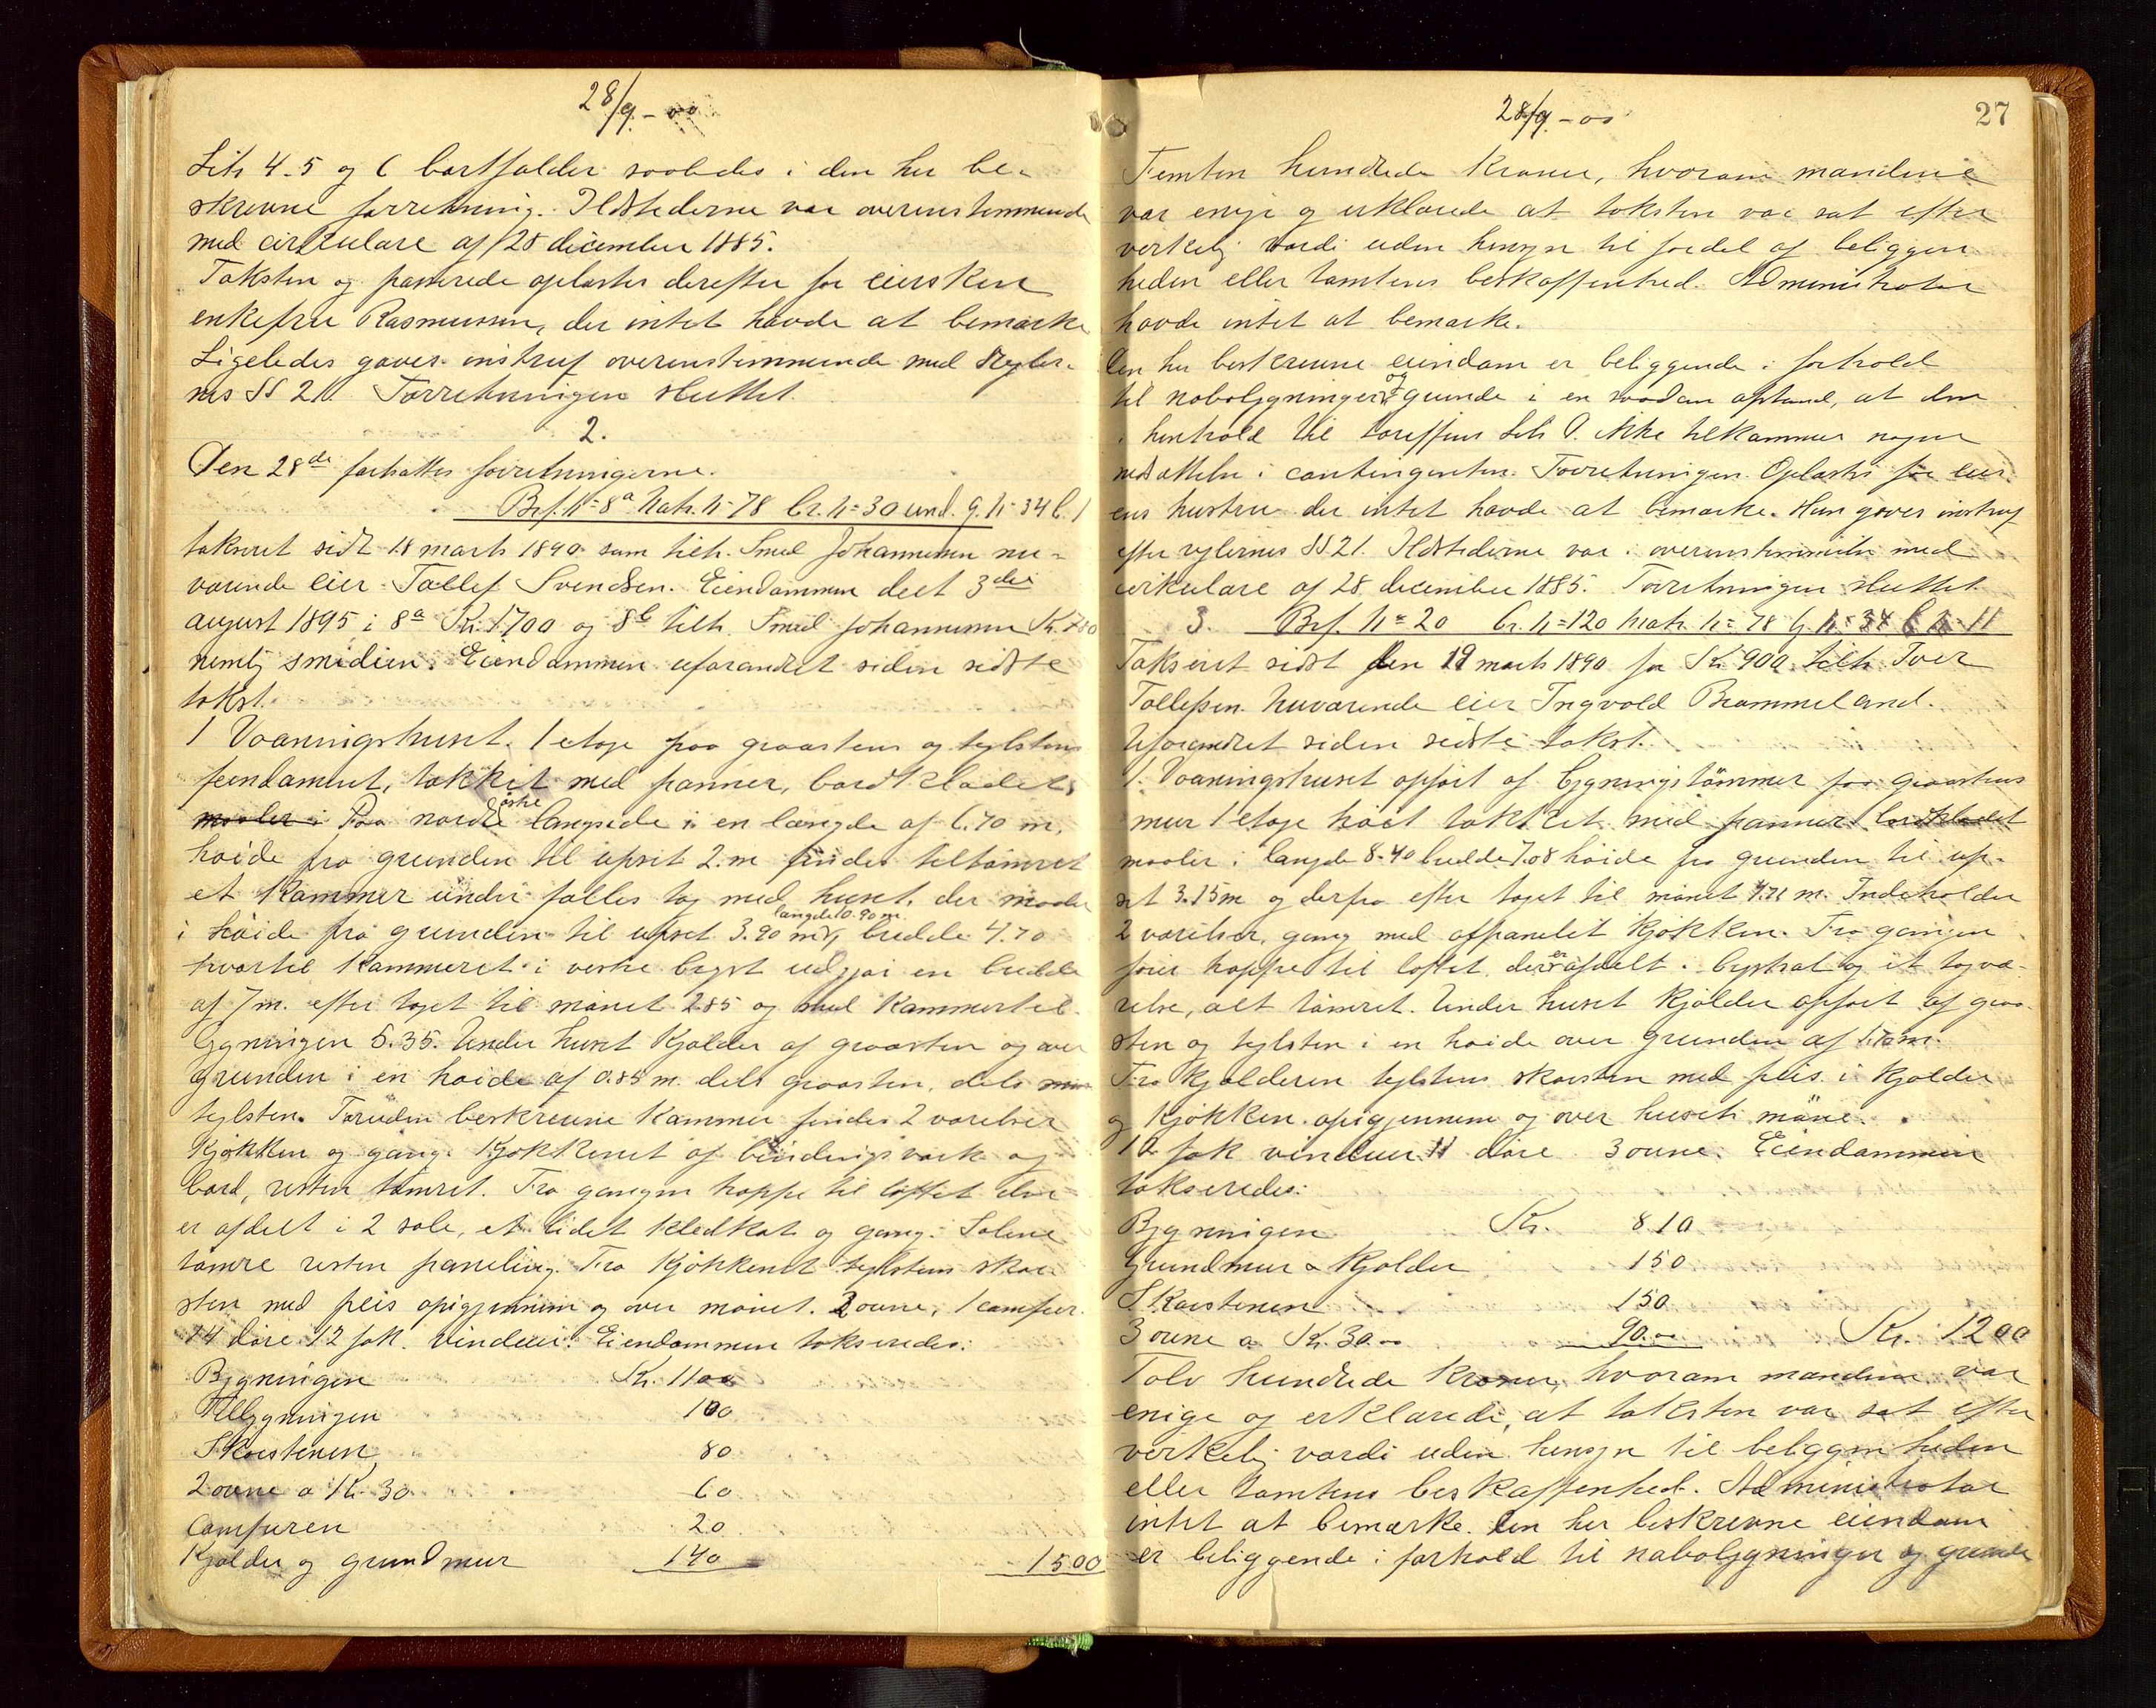 28/9 - 00
Lits 4-5 og 6 bortfalder saaledes i den her be-
skrevne forretning. Ildstederne var overenstemmende
med cirkulære af 28 december 1885.
Taksten og passerede oplæstes derefter for eiersken
enkefru Rasmussen, der intet havde at bemærke
Ligeledes gaves instruf overenstemmende med Regler-
nes §§ 21. Forretningen sluttet.
2.
Den 28de fortsattes forretningerne.
Brf. № 8a Matr. № 78 Br. № 30 und. G. № 34 b. 1
takseret sidst 18 marts 1890 som tilh. Smed Johannesen nu-
værende eier Tollef Svendsen. Eiendommen delt 3die
august 1895 i 8a Kr. 1700 og 8b tilh. Smed Johannesen Kr. 700
nemlig smedien. Eiendommen uforandret siden sidste
takst.
1 Vaaningshuset. 1 etage paa graastens og teglstens
fundament, tækket med panner, bordklædet,
maaler i Paa nordøstre langside i en længde af 6.70 m.
høide fra grunden til opset 2.m findes tiltømret
et kammer under fælles tag med huset, der maaler
i høide fra grunden til opset 3.90 m, længde 10.90 m. bredde 4.70
hvortil kammeret i vestre bryst udgjør en bredde
af 7 m. efter taget til mønet 2.85 og med kammertil-
bygningen 5.35. Under huset kjælder af graasten og over
grunden i en høide af 0.85 m. dels graasten, dels
teglsten. Foruden beskrevne kammer findes 2 værelser
kjøkken og gang. Kjøkkenet af bindingsværk og
bord, resten tømret. Fra gangen trappe til loftet der
er afdelt i 2 sale, et lidet klædkot og gang. Salene
tømre resten paneling. Fra kjøkkenet teglstens skor-
sten med peis opigjennem og over mønet. 2 ovne, 1 comfur
14 døre 12 fak. vinduer. Eiendommen takseredes:
Bygningen Kr. 1100
Tilbygningen 100
Skorstenen 80
2 ovne a Kr. 30 60
Comfuren 20
Kjælder og grundmur 140 1500
28/9 - 00
27
Femten hundrede kroner, hvorom mændene
var enige og erklærede at taksten var sat efter
verkelig værdi uden hensyn til fordel af beliggen
heden eller tomtens beskaffenhed. Administrator
havde intet at bemærke.
Den her beskrevne eiendom er beliggende i forhold
til nabobygninger og grunde i en saadan afstand, at den
i henhold til tariffens Lits P. ikke tilkommer nogen
nedsættelse i contingenten. Forretningen Oplæstes for eier-
ens hustru der intet havde at bemærke. Hun gaves instruf
efter reglernes §§ 21. Ildstederne var i overenstemmelse med
cirkulære af 28 december 1885. Forretningen sluttet.
3. Brf. № 20 Br. № 120 Matr. № 78 G. № 34 b № 11
Takseret sidst den 19 marts 1890 for Kr. 900 tilh. Tver
Tollefsen. Nuværende eier Ingvold Brommeland.
Uforandret siden sidste takst.
1. Vaaningshuset opført af bygningstømmer paa graastens
mur 1 etage høit tækket med panner bordklædet
maaler i længde 8.40 bredde 7.08 høide fra grunden til op-
set 3.15 m og derfra efter taget til mønet 4.21 m. Indeholder
2 værelser, gang med afpanelet kjøkken. Fra gangen
fører trappe til loftet, der er afdelt i brystsal og et tagvæ-
relse, alt tømret. Under huset kjælder opført af graa-
sten og teglsten i en høide over grunden af 1.10 m.
Fra kjælderen teglstens skorsten med peis i kjælder
og kjøkken opigjennem og over husets møne.
10 fak vinduer 11 døre 3 ovne. Eiendommen
takseredes:
Bygningen Kr. 810
Grundmur & kjælder 150
Skorstenen 150
3 ovne a Kr. 30.00 90.00 Kr. 1200
Tolv hundrede kroner, hvorom mændene var
enige og erklærede, at taksten var sat efter
verkelig værdi uden hensyn til beliggenheden
eller tomtens beskaffenhed. Administrator
intet at bemærke. Den her beskrevne eiendom
er beliggende i forhold til nabobygninger og grunde